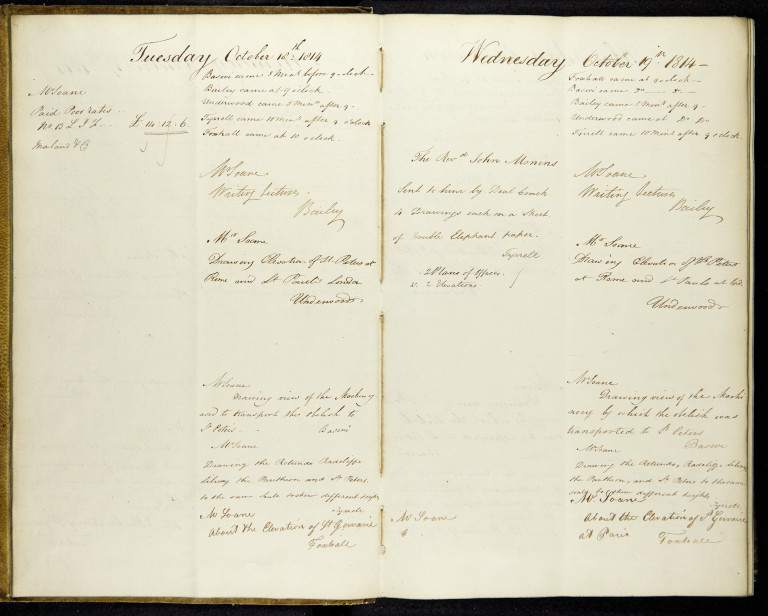 Tuesday October 18th. 1814
Mr Soane
Paid Poor rates
No. 13 L. I. F.
£ 114.12.6
Basevi came 5 Mints before 9 oclock
Bailey came at 9 oclock
Underwood came 5 Mints after 9
Tyrrell came 10 Mints after 9 oClock
Foxhall came at 10 oclock
Mr Soane
Writing Lectures
Bailey
Mr Soane
Drawing Elevation of St. Peters at
Rome and St Pauls London
Underwood
Mr Soane
Drawing view of the Machinery
used to transport the Obelisk to
St Peters
Basevi
Mr Soane
Drawing the Rotunda Radcliffe
Library the Pantheon and St Peters
to the same scale to shew different heights
Tyrrell
Mr Soane
About the Elevation of St Genvieve
Foxhall
Wednesday October 19th 1814
The Revd. John Monins
Sent to him by Deal Coach
4 Drawings each on a Sheet
of Double Elephant paper.
Tyrrell
2 Plans of Offices.
2 Elevations.
Mr Soane
Foxhall came at 9 oclock
Basevi came Do Do
Bailey came 5 Mints after 9
Underwood came at Do Do
Tyrrell came 10 Mints after 9 oclock
Mr Soane
Writing Lectures
Bailey
Mr Soane
Drawing Elevation of St. Peters
at Rome and St Pauls at Lond.
Underwood
Mr Soane
Drawing view of the Machi
nery by which the obelisk was
transported to St Peters
Basevi
Mr Soane
Drawing the Rotunda, Radcliffe Library
the Pantheon, and St Peters to the same
scale to shew different heights
Tyrrell
Mr Soane
About the Elevation of St Genvieve
at Paris
Foxhall